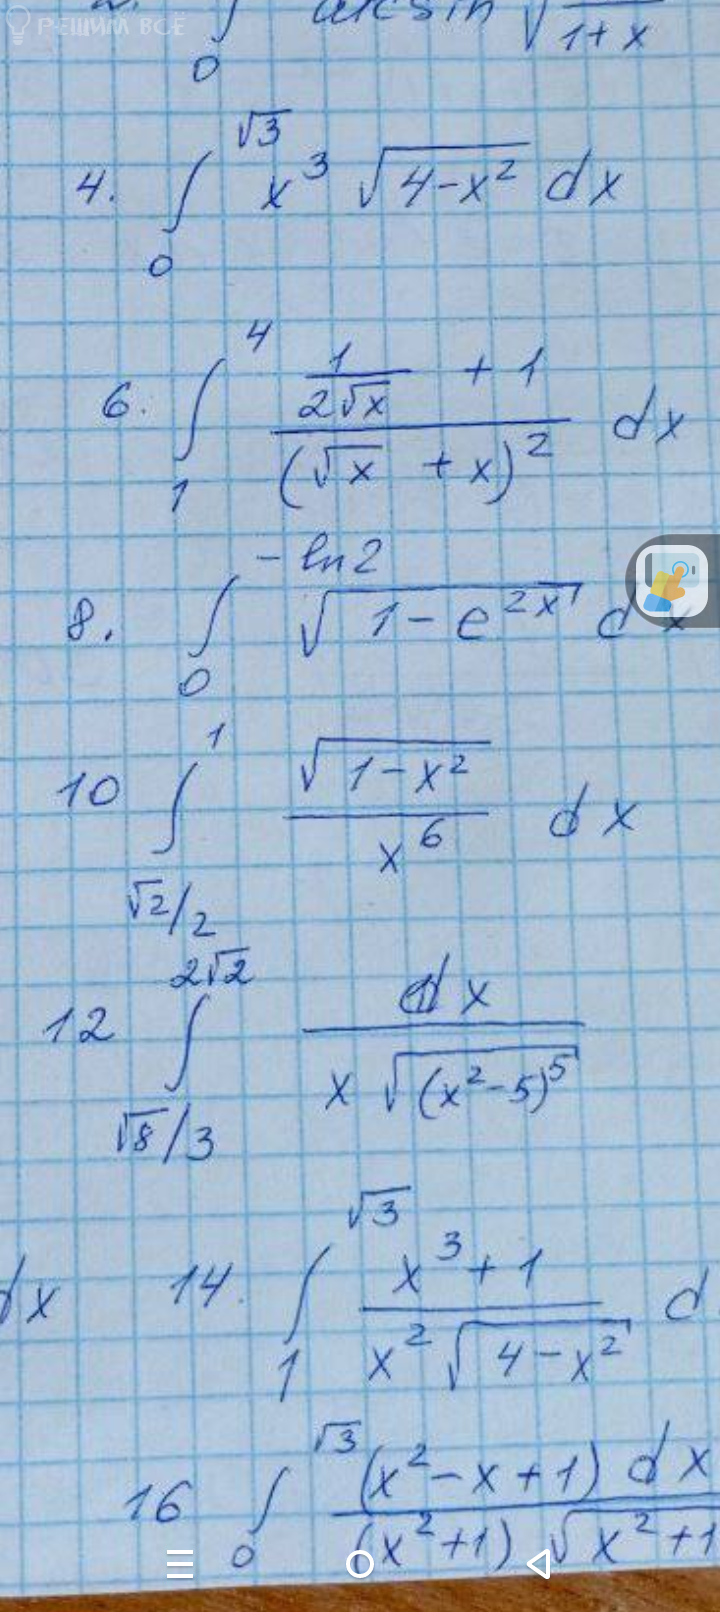 РЕШИМ ВСЁ
2. ∫ 0 arcsin √ 1+x
4. ∫ 0 √3 x³ √(4-x²) dx
6. ∫ 1 4 (1/(2√x) + 1)/(√x + x)² dx
8. ∫ 0 -ln2 √(1-e^(2x)) dx
10 ∫ √2/2 1 √(1-x²)/x⁶ dx
12 ∫ √8/3 2√2 dx/(x √((x²-5)⁵))
dx 14. ∫ 1 √3 (x³+1)/(x² √(4-x²)) d
16 ∫ 0 √3 (x²-x+1) dx/((x²+1) √(x²+1